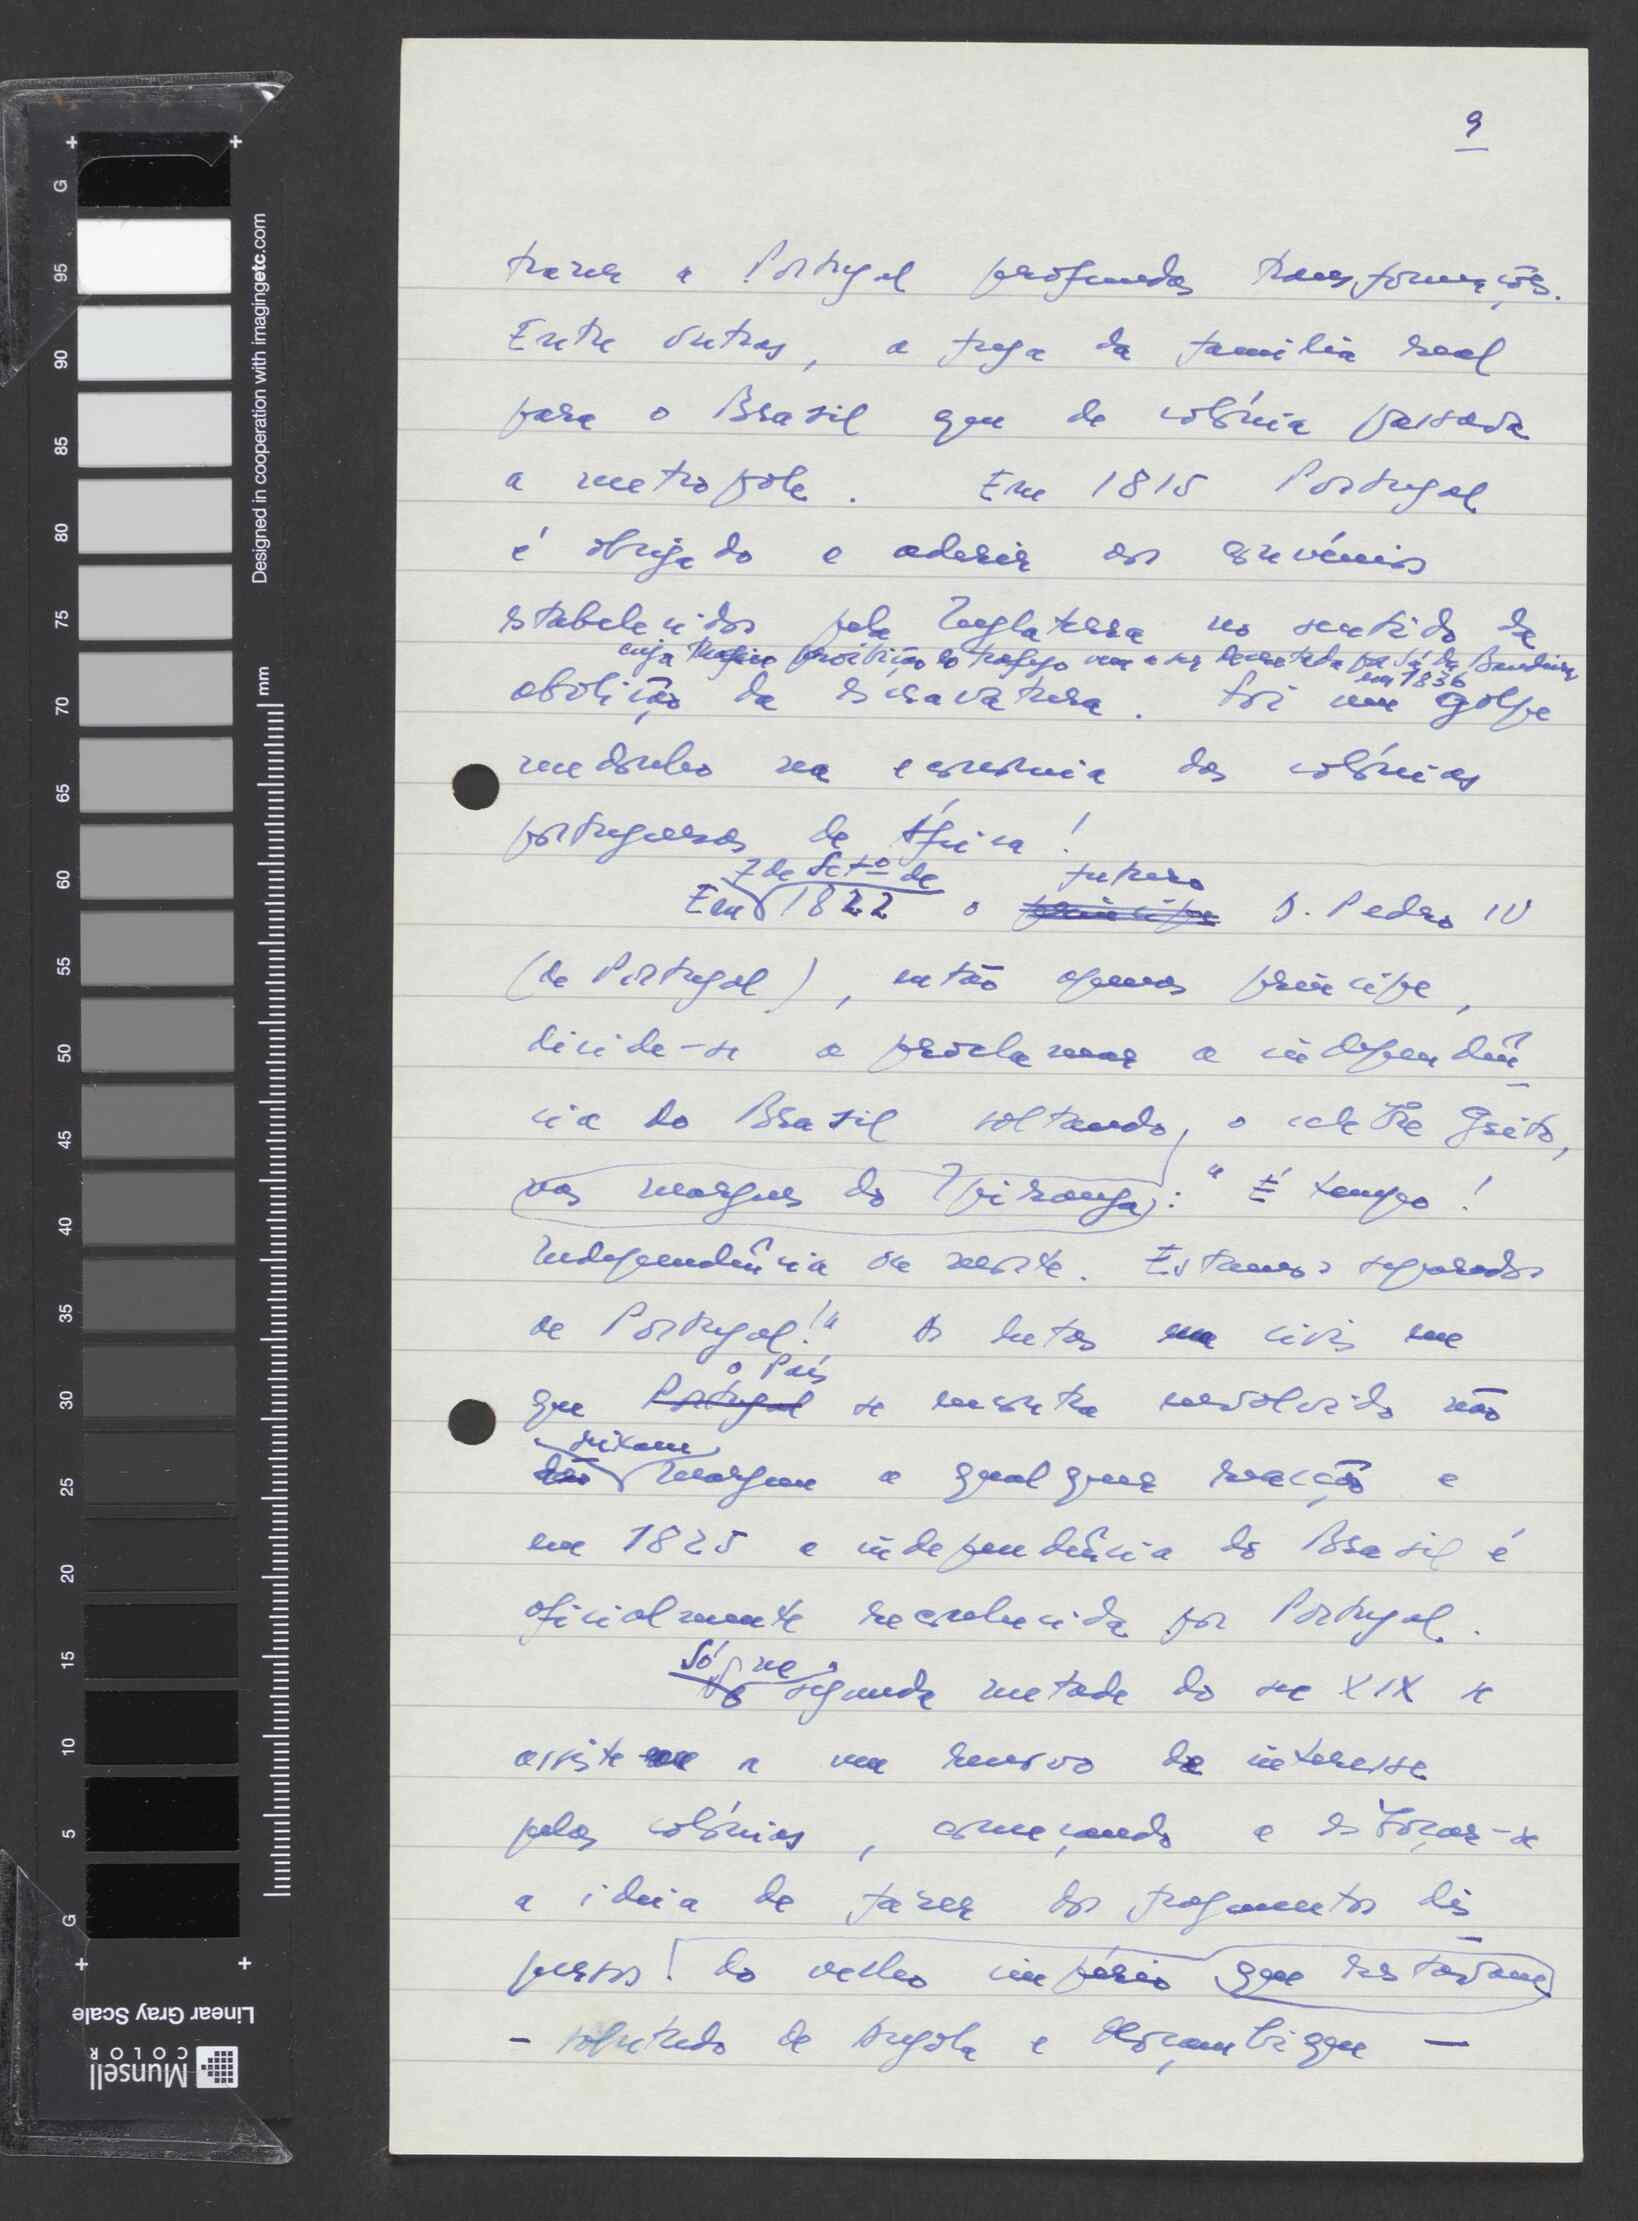 9
trazer a Portugal profundas transformações.
Entre outras, a fuga da família real
para o Brasil que de colónia passava
a metropole. Em 1815 Portugal
é obrigado a aderir aos convénios
estabelecidos pela Inglaterra no sentido da
cuja proibição do tráfego vem a ser decretada por Sá da Bandeira
em 1836
abolição da escravatura. Foi um golpe
medonho na economia das colónias
portuguesas de África!
7 de Setº de futuro
Em 1822 o príncipe D. Pedro IV
(de Portugal), então apenas príncipe,
decide-se a proclamar a independên
cia do Brasil soltando, o celebre grito,
nas margens do Ipiranga: "É tempo!
Independência ou morte. Estamos separados
de Portugal!" As lutas civis em
o País
que Portugal se encontra envolvido não
deixam
dão margem a qualquer reacção e
em 1825 a independência do Brasil é
oficialmente reconhecida por Portugal.
Só na
segunda metade do sec XIX se
assiste a um renovo de interesse
pelas colónias, começando a esboçar-se
a ideia de fazer dos fragmentos dis
persos do velho império que restavam
- sobretudo de Angola e Moçambique -
Designed in cooperation with imagingetc.com
mm
G 95 90 85 80 75 70 65 60 55 50 45 40 35 30 25 20 15 10 5 G
Linear Gray Scale
Munsell
COLOR